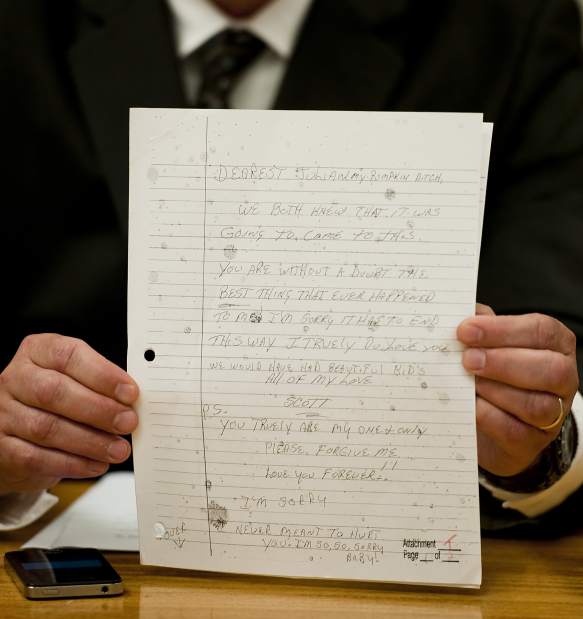 DEAREST JULIAN MY PUMPKIN BITCH,
WE BOTH KNEW THAT IT WAS
GOING TO COME TO THIS
YOU ARE WITHOUT A DOUBT THE
BEST THING THAT EVER HAPPENED
TO ME I'M SORRY IT HAS TO END
THIS WAY I TRUELY DO LOVE YOU
WE WOULD HAVE HAD BEAUTIFUL KID'S
ALL OF MY LOVE
SCOTT
P.S.
YOU TRUELY ARE MY ONE & ONLY
PLEASE FORGIVE ME
LOVE YOU FOREVER!!
I'M SORRY
I NEVER MEANT TO HURT
YOU. I'M SO, SO, SORRY
BABY.
OVER
Attachment 1
Page 1 of 2